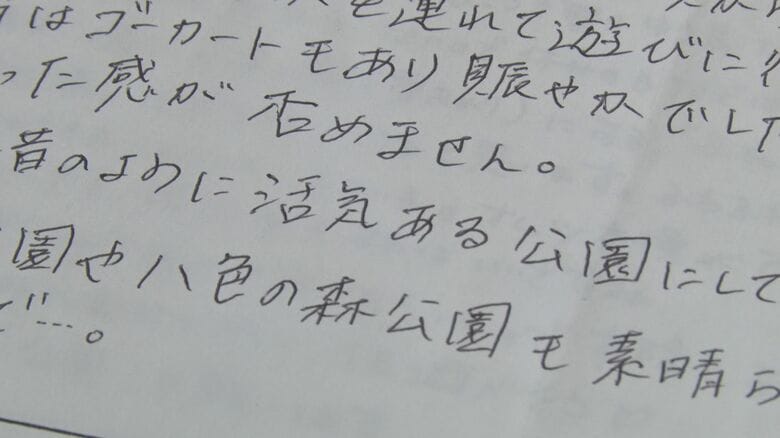 を連れて遊びに行
はゴーカートもあり賑やかでした
った感が否めません。
昔のように活気ある公園にして
園や八色の森公園も素晴ら
で…。